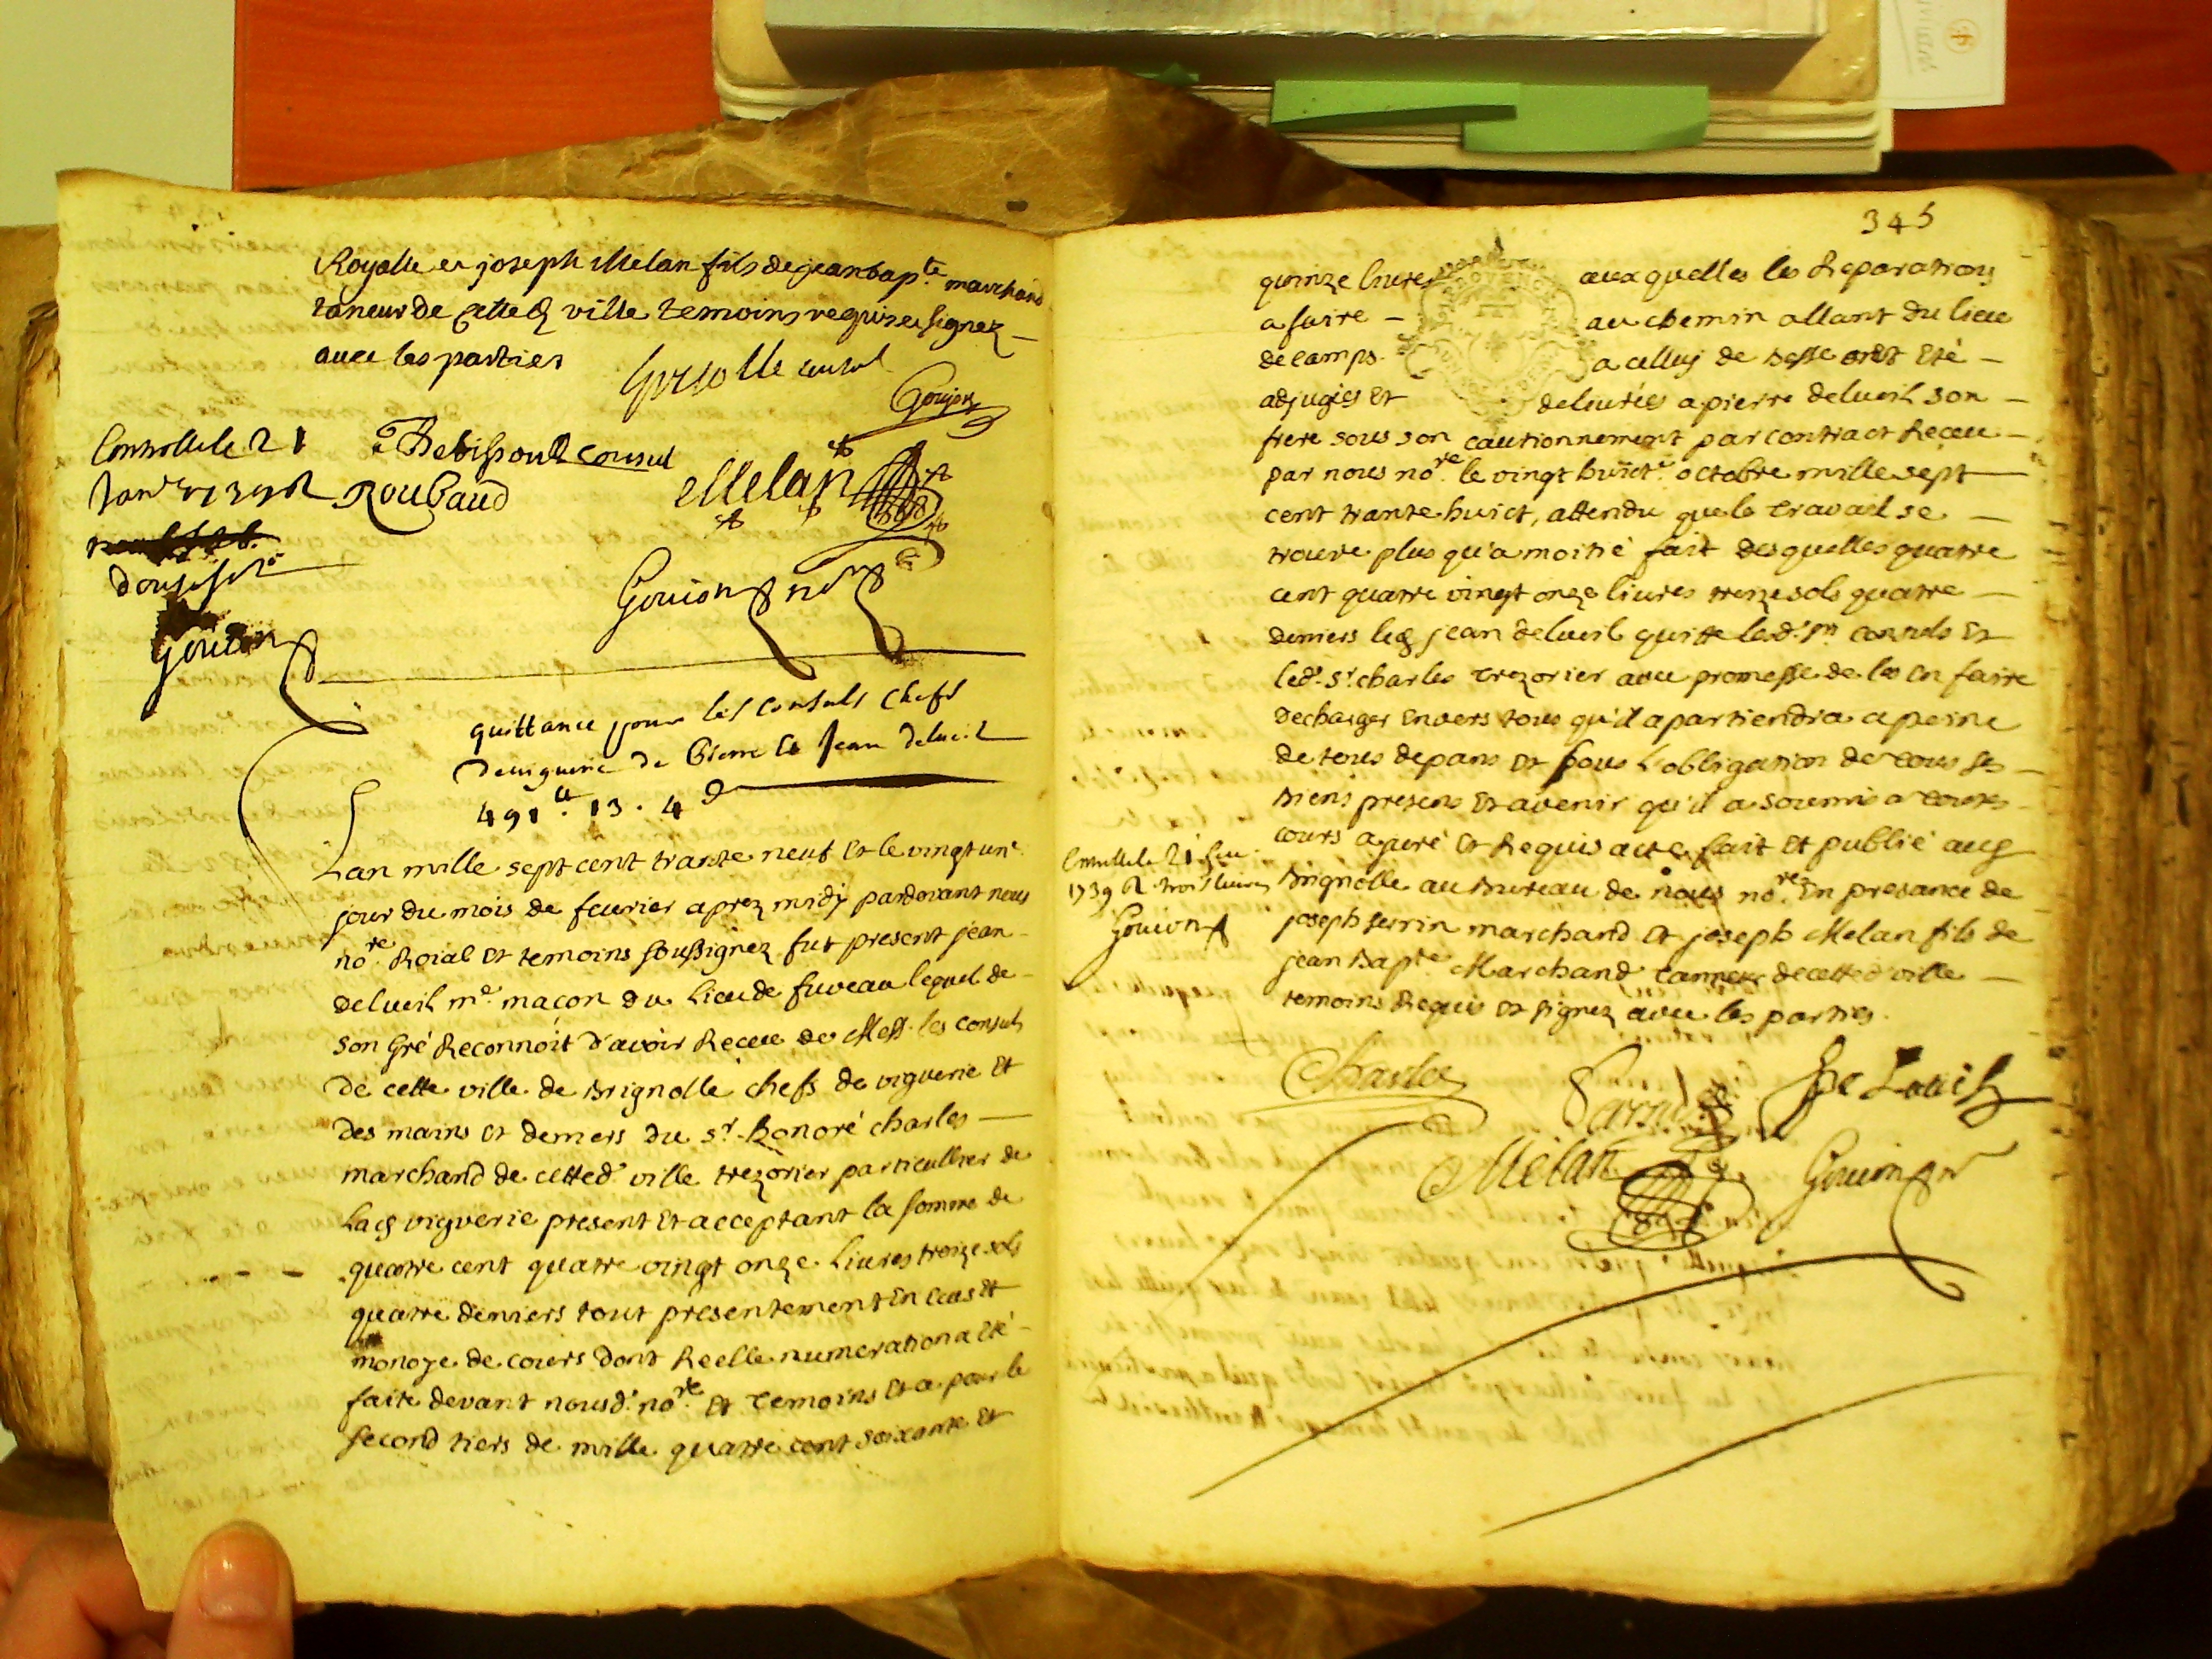 Royalle et joseph Melan fils de jean bap.te marchand
taneur de cette d ville temoins requis et signez
avec les parties
Grisolle consul
Goujon
Controllé le 21
Debissoul consul
Melan
Roubaud
Gouion no.re
Gouion
quittance pour les consuls chefs
de viguerie de Pierre et Jean delueil
491 ll. 13. 4 d
Lan mille sept cent trante neuf et le vingt un.e
jour du mois de feurier aprez midy pardevant nous
no.re Roial et temoins soussignez fut present jean
delueil m.e macon du Lieu de fuveau lequel de
son gré Reconnoit d'avoir Receu de Mess. les consuls
de cette ville de Brignolle chefs de viguerie et
des mains et deniers du s.r honoré charles
marchand de cetted. ville trezorier particullier de
lad viguerie present et acceptant la somme de
quatre cent quatre vingt onze Liures treize sols
quatre deniers tout presentement En
monoye de cours dont Reelle numeration a eté
faite devant nousd. no.re et temoins et a pour le
second tiers de mille quatre cent soixante et
345
quinze liures auxquelles les Reparations
a faire au chemin allant du lieu
de camps a celluy de Besse ont eté
adjugées et deliurées a pierre delueil son
frere sous son cautionnement par contract Receu
par nous no.re le vingt huict.e octobre mille sept
cent trante huict, attendu que le travail se
trouve plus qu'a moitié fait desquelles quatre
cent quatre vingt onze liures treize sols quatre
deniers led jean delueil quitte lesd. srs consuls et
led. s.r charles trezorier avec promesse de les en faire
decharger envers tous qu'il apartiendra a peine
de tous depans et sous L'obligation de tous ses
biens presens et avenir qu'il a soumis a toutes
cours a juré et Requis acte fait et publié aud
Brignolle au Bureau de nous no.re En presance de
joseph serrin marchand et joseph Melan fils de
jean Bap.te Marchand tanneur de cetted ville
temoins Requis et signez avec les parties.
Controllé le 21 feu.
1739 R trois liures
Gouion
Charles
De Loueil
Melan
Gouion nr